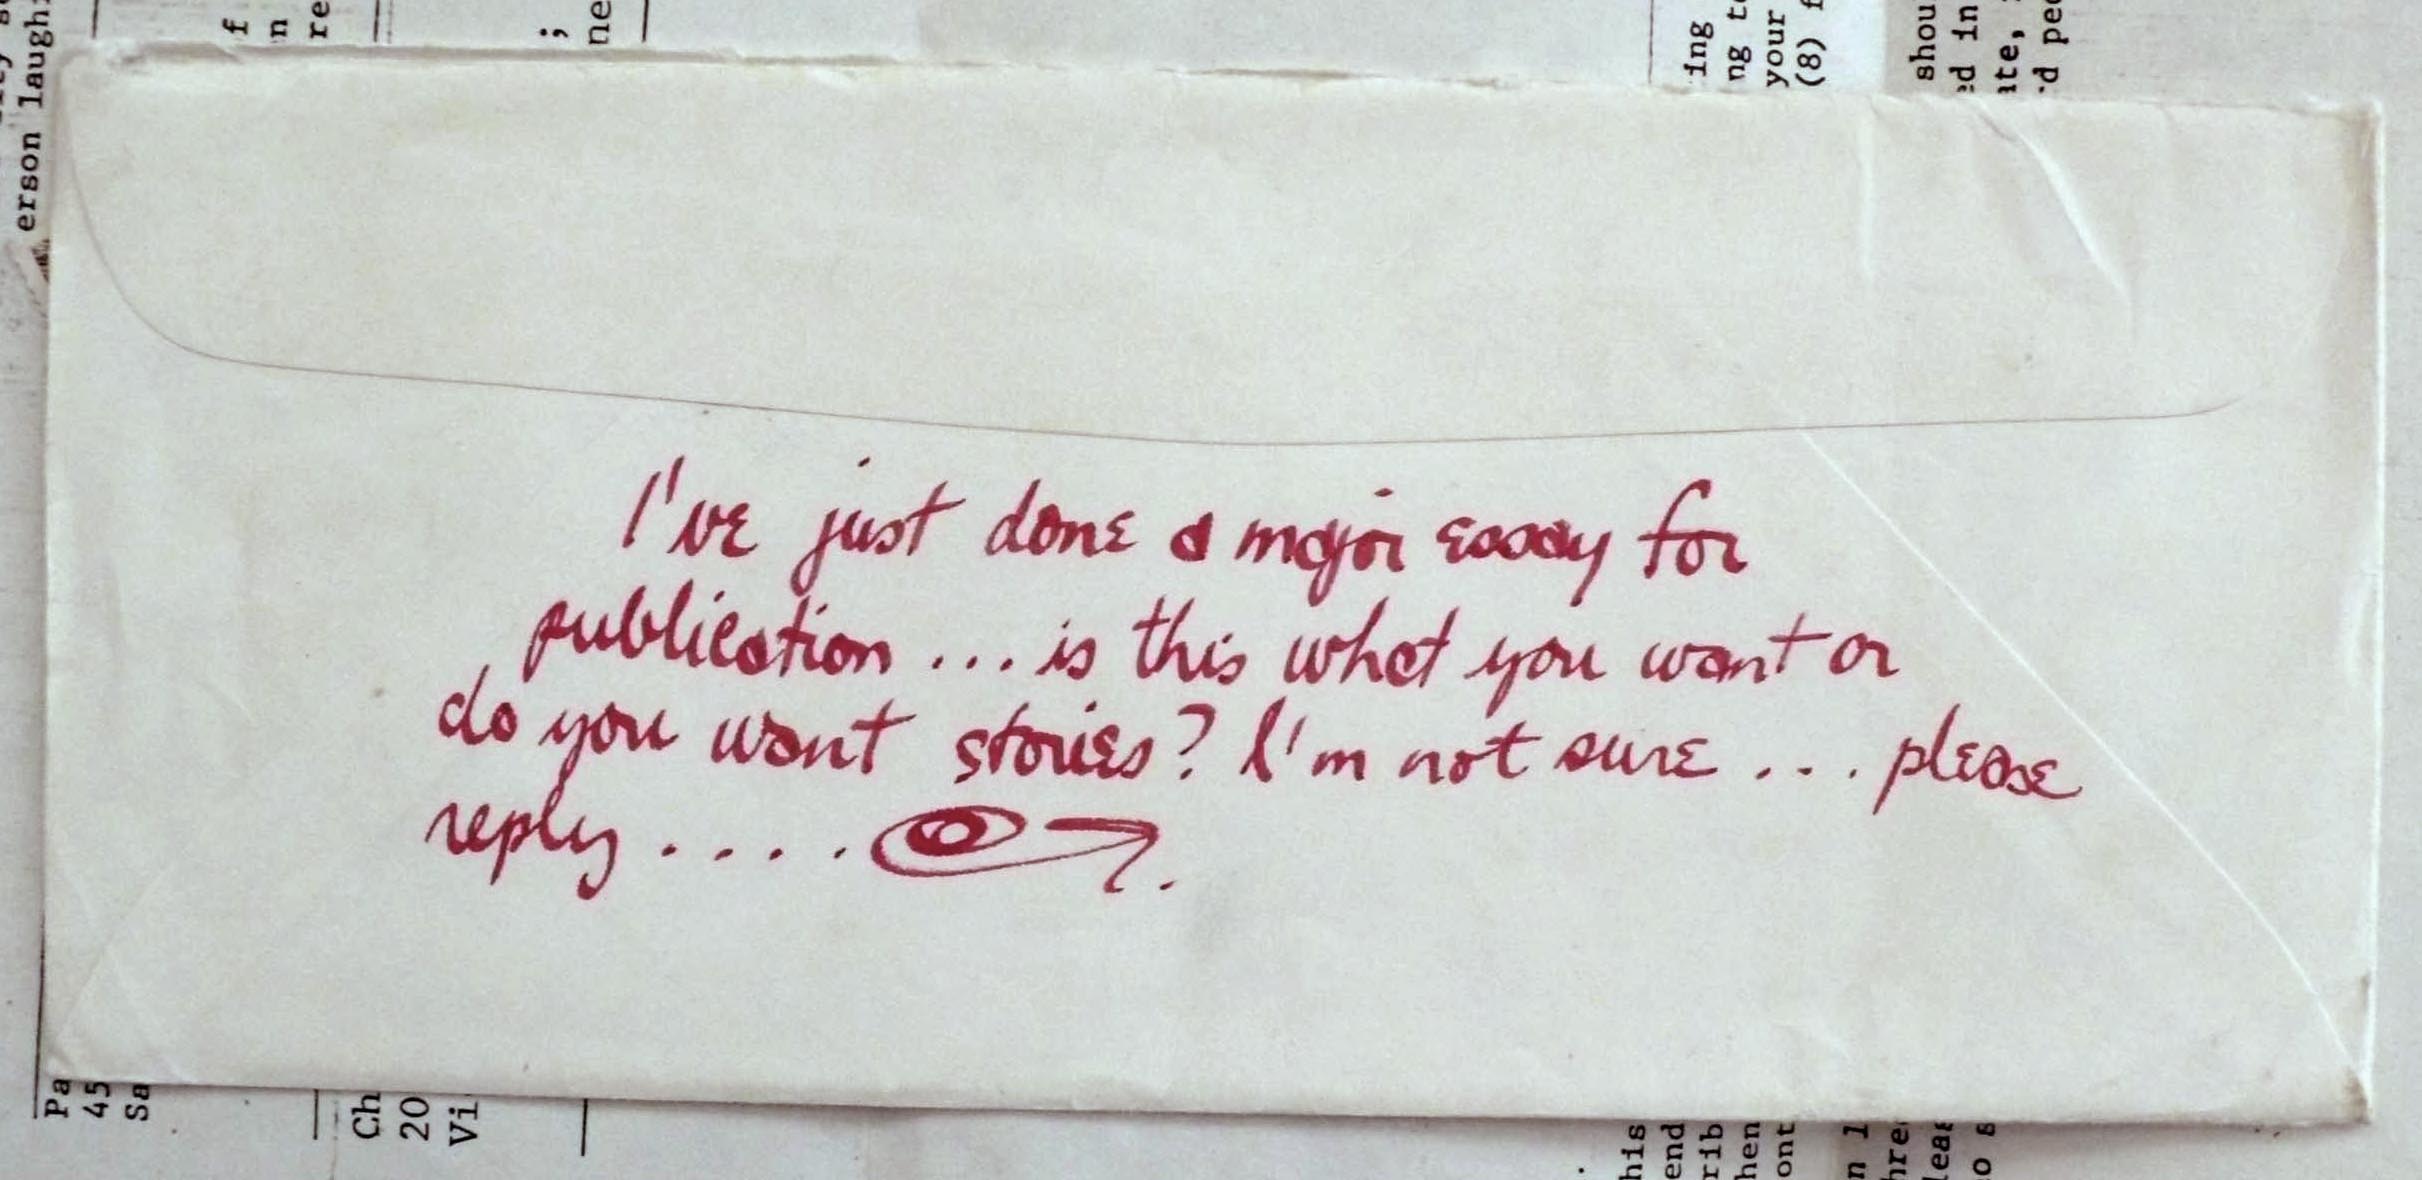 I've just done a major essay for
publication ... is this what you want or
do you want stories? I'm not sure ... please
reply ....
erson laugh
f
n
re
;
ne
ing
ng to
your
(8) f
shou
ed in
ate,
d pec
Pa
45
Sa
Ch
20
Vi
his
end
rib
hen
ont
n l
hre
leas
o s